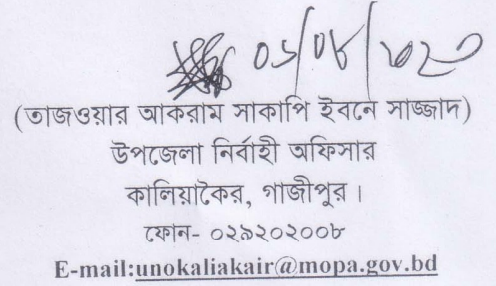 (তাজওয়ার আকরাম সাকাপি ইবনে সাজ্জাদ)
উপজেলা নির্বাহী অফিসার
কালিয়াকৈর, গাজীপুর।
ফোন- ০২৯২০২০০৮
E-mail:unokaliakair@mopa.gov.bd